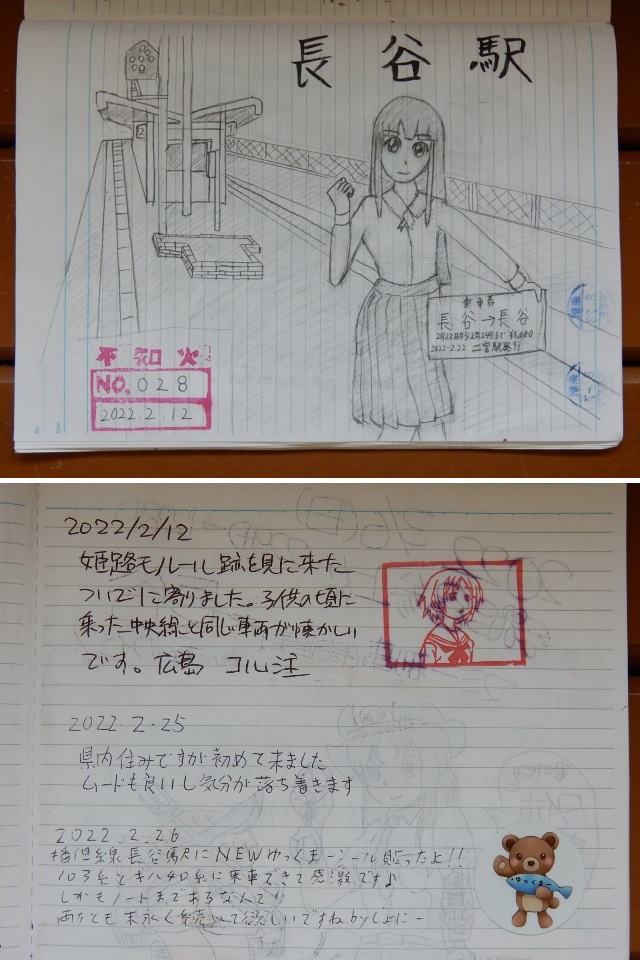 長谷駅
乗車券
長谷→長谷
2月22日から2月24日まで ¥5,080
2022-2.22 二宮駅発行
不知火
NO.028
2022.2.12
2022/2/12
姫路モノレール跡を見に来た
ついでに寄りました。子供の頃に
乗った中央線と同じ車両が懐かしい
です。広島
2022.2.25
県内住みですが初めて来ました
ムードも良いし気分が落ち着きます
2022.2.26
播但線長谷駅にNEWゆっくまーシール貼ったよ!!
103系とキハ40系に乗車できて感激です♪
しかもノートまであるなんて
末永く続いて欲しいですね by しょにー
ゆっくまー